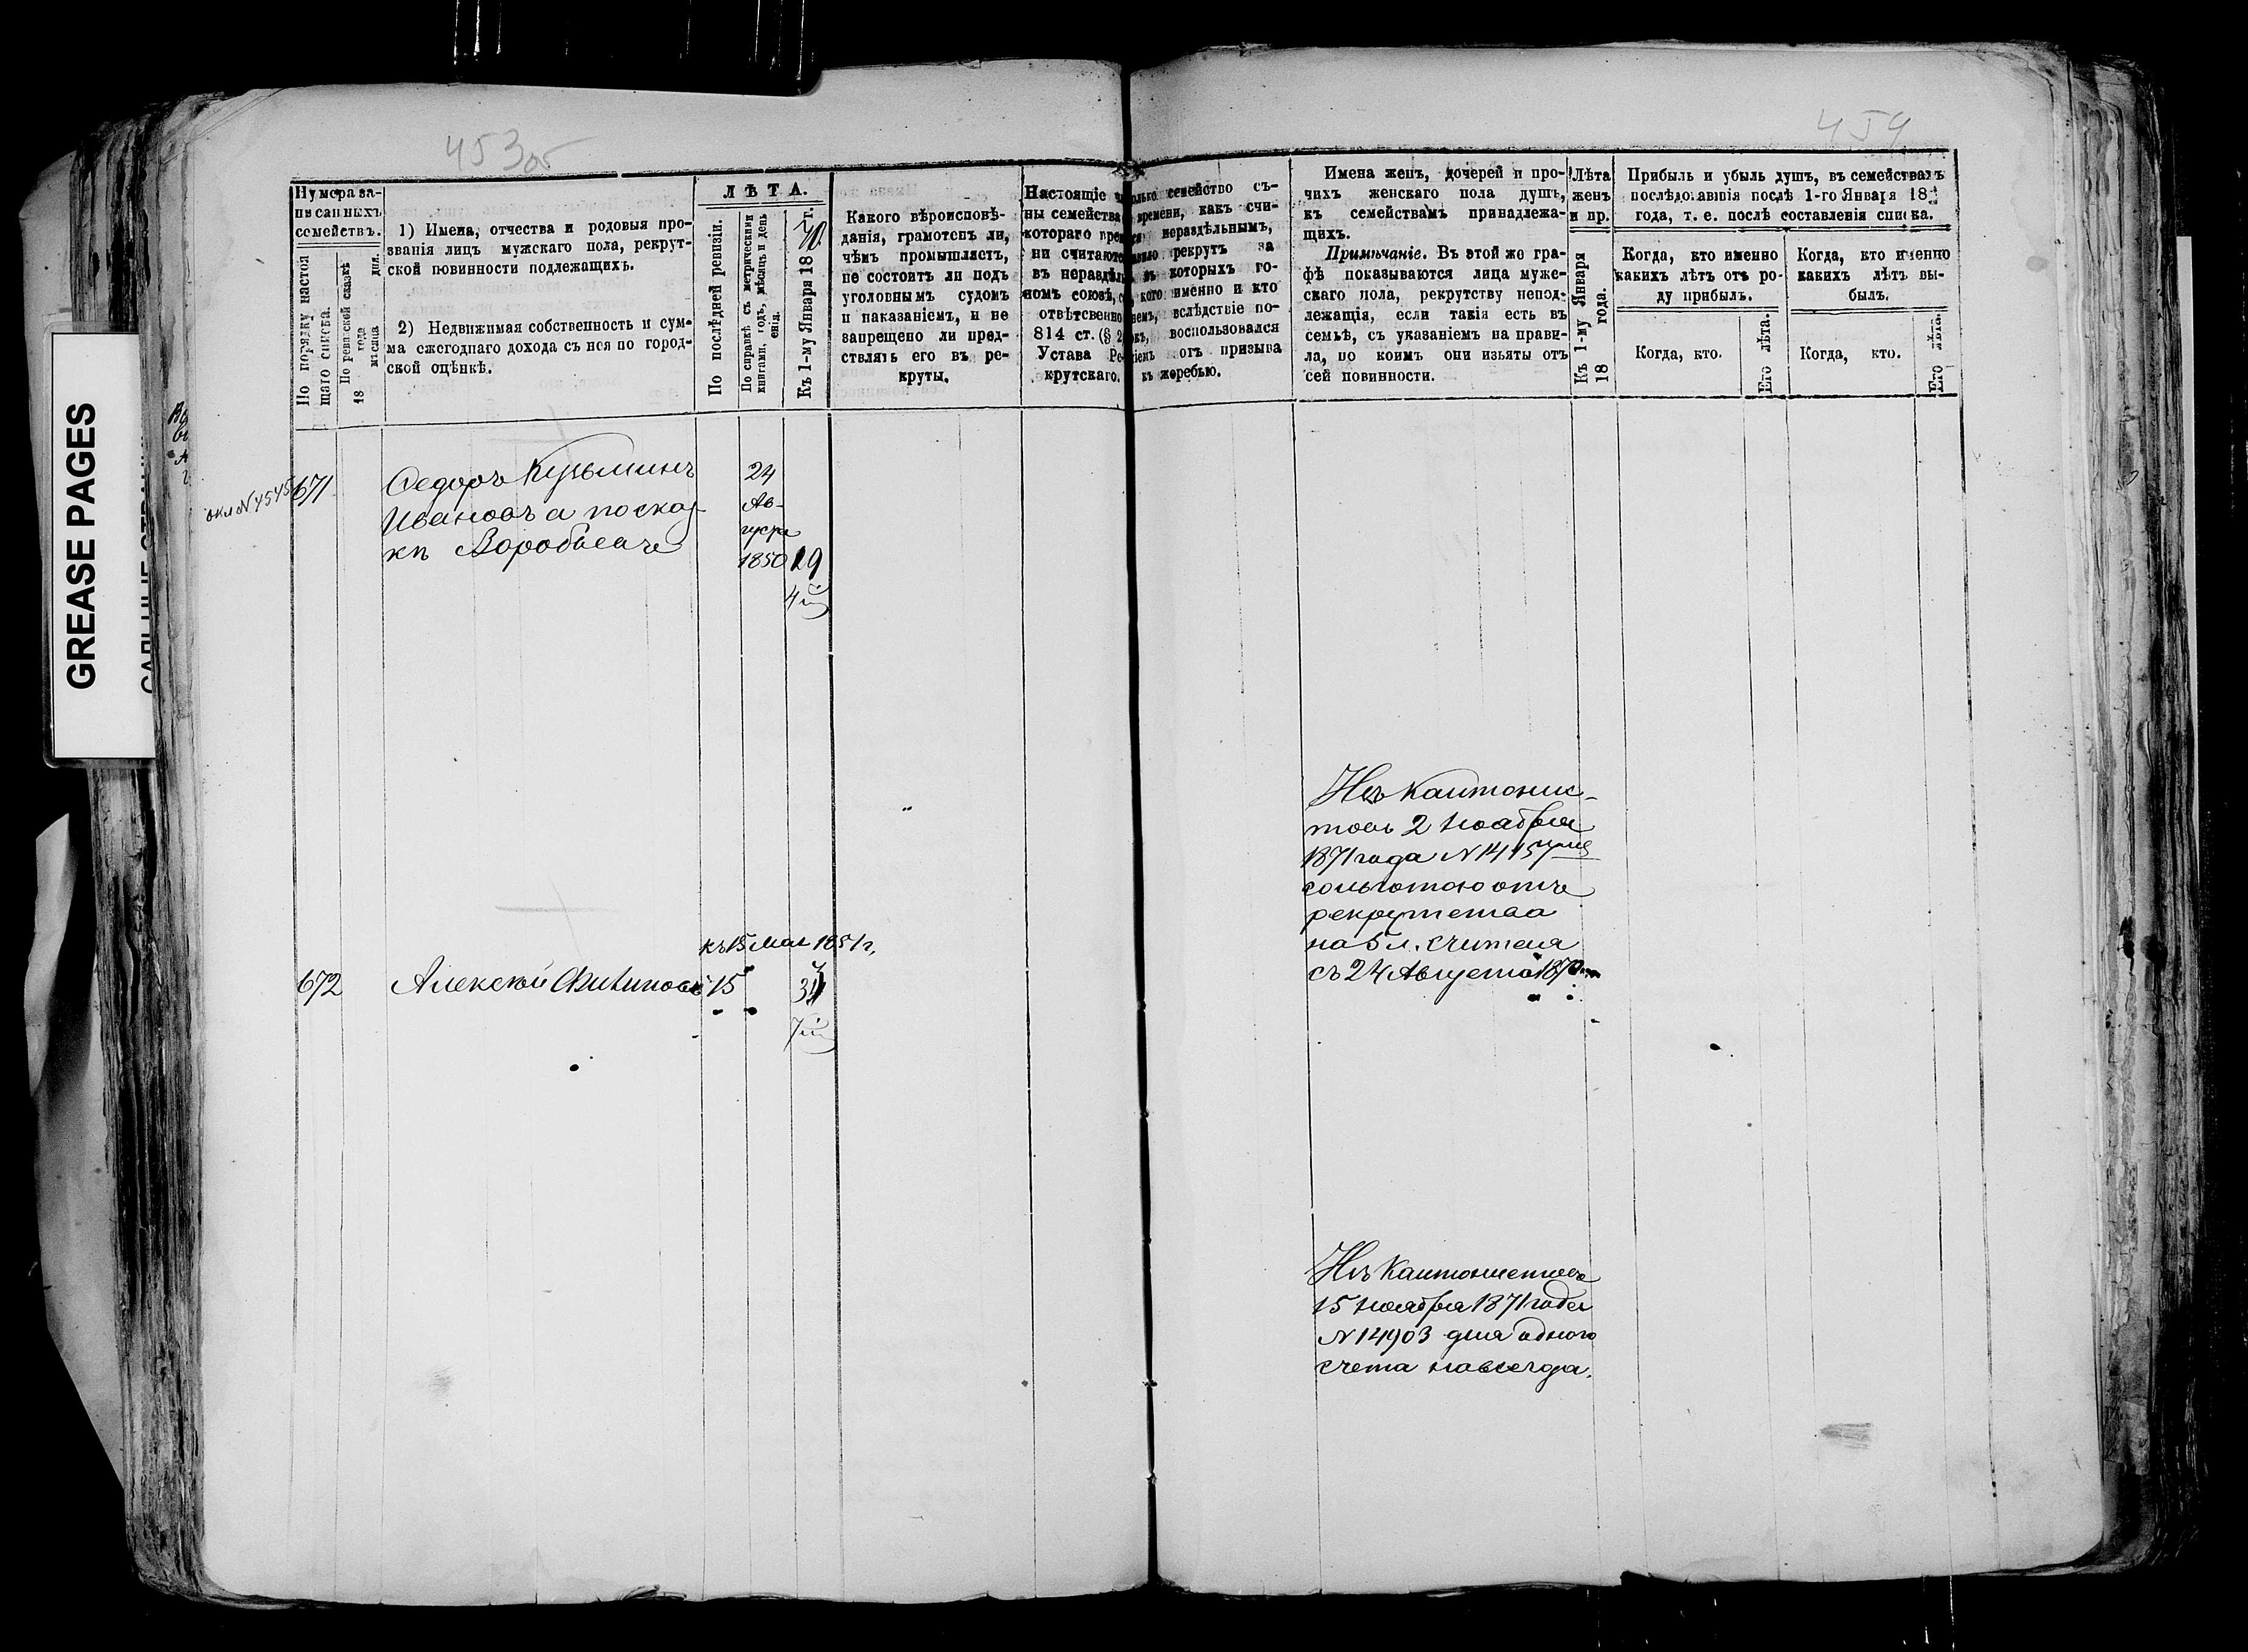 453об
454
GREASE PAGES
Нумера за-
писанныхъ
семействъ.
По порядку настоя
щаго списка.
По ревизской сказкѣ
18 года
мѣсяца дня.
1) Имена, отчества и родовыя про-
званія лицъ мужскаго пола, рекрут-
ской повинности подлежащихъ.
2) Недвижимая собственность и сум-
ма ежегоднаго дохода съ нея по город-
ской оцѣнкѣ.
ЛѢТА.
По послѣдней ревизіи.
По справкѣ съ метрическими
книгами, годъ, мѣсяцъ и день
Къ 1-му Января 1870 г.
Какого вѣроисповѣ-
данія, грамотенъ ли,
чѣмъ промышляетъ,
не состоитъ ли подъ
уголовнымъ судомъ
и наказаніемъ, и не
запрещено ли пред-
ствлять его въ ре-
круты.
Настоящіе
ны семейства
котораго
ни считаютс
въ нераздѣль
номъ союзѣ,
отвѣтственно
814 ст. (§ 2
Устава Ре
крутскаго.
семейство съ-
времени, какъ счи-
нераздѣльнымъ,
рекрутъ за
въ которыхъ го-
кого именно и кто
вслѣдствіе по-
воспользовался
отъ призыва
къ жеребью.
Имена женъ, дочерей и про-
чихъ женскаго пола душъ,
къ семействамъ принадлежа-
щихъ.
Примѣчаніе. Въ этой же гра-
фѣ показываются лица муже-
скаго пола, рекрутству непод-
лежащія, если такія есть въ
семьѣ, съ указаніемъ на прави-
ла, по коимъ они изъяты отъ
сей повинности.
Лѣта
женъ
и пр.
Къ 1-му Января
18 года.
Прибыль и убыль душъ, въ семействахъ
послѣдовавшія послѣ 1-го Января 187
года, т. е. послѣ составленія списка.
Когда, кто именно
какихъ лѣтъ отъ ро-
ду прибылъ.
Когда, кто именно
какихъ лѣтъ вы-
былъ.
Когда, кто.
Его лѣта.
Когда, кто.
Его лѣта.
окл N 4545
671
Федоръ Кузьминъ
Ивановъ а по сказ-
кѣ Воробьевъ
24
Ав-
густа
1850
19
4й
Изъ Кантонис-
товъ 2 Ноября
1871 года
со льготою отъ
рекрутства
на 5 л. считая
съ 24 Августа 1870
къ 15 Мая 1851 г.
672
Алексѣй Филиповъ
15
7й
Изъ Кантонистовъ
15 Ноября 1871 года
N 14903 для одного
счета навсегда.